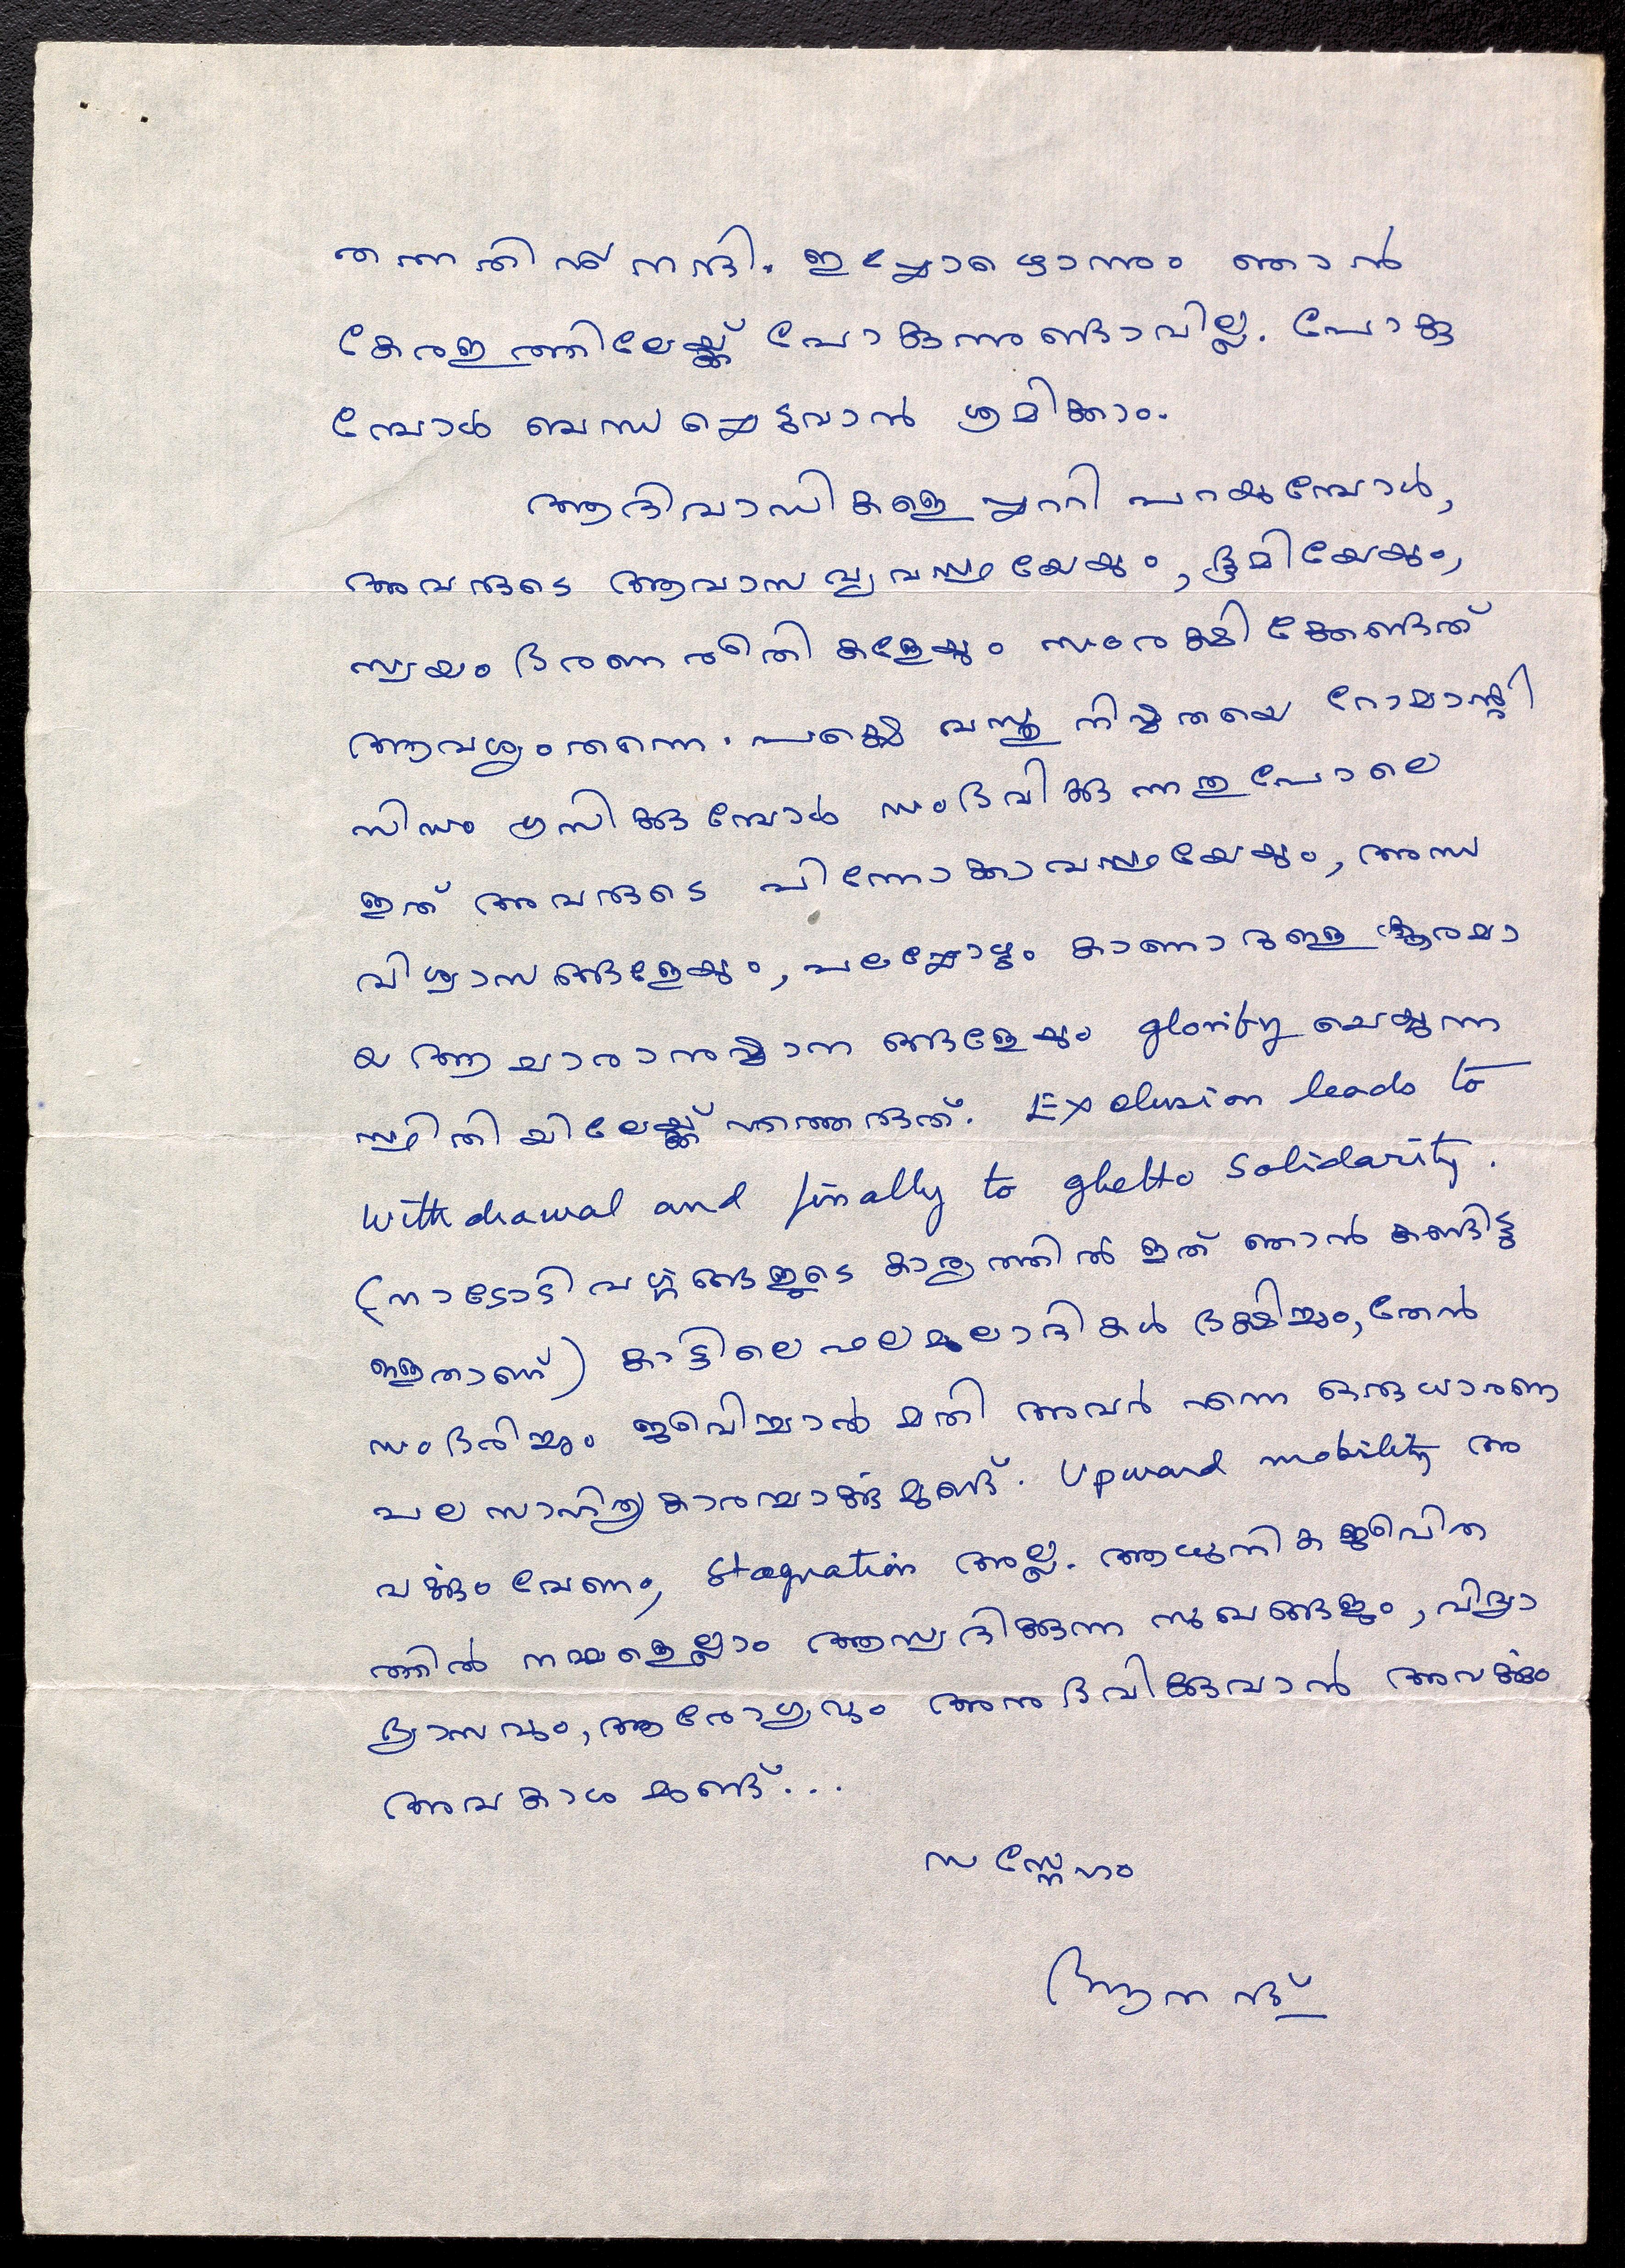 തന്നതിന് നന്ദി. ഇപ്പോഴൊന്നും ഞാൻ
കേരളത്തിലേയ്ക്ക് പോകുന്നുണ്ടാവില്ല. പോകു
മ്പോൾ ബന്ധപ്പെടുവാൻ ശ്രമിക്കാം.
ആദിവാസികളെപ്പററി പറയുമ്പോൾ,
അവരുടെ ആവാസവ്യവസ്ഥയേയും, ഭൂമിയേയും,
സ്വയംഭരണരീതികളേയും സംരക്ഷിക്കേണ്ടത്
ആവശ്യംതന്നെ. പക്ഷെ വസ്തുനിഷ്ഠതയെ റോമാന്റി
സിസം ഗ്രസിക്കുമ്പോൾ സംഭവിക്കുന്നതുപോലെ
ഇത് അവരുടെ പിന്നോക്കാവസ്ഥയേയും, അന്ധ
വിശ്വാസങ്ങളേയും, പലപ്പോഴും കാണാറുള്ള ക്രൂരമാ
യ ആചാരാനുഷ്ഠാനങ്ങളേയും glorify ചെയ്യുന്ന
സ്ഥിതിയിലേയ്ക്ക് എത്തരുത്. Exclusion leads to
withdrawal and finally to ghetto solidarity.
(നാടോടിവർഗ്ഗങ്ങളുടെ കാര്യത്തിൽ ഇത് ഞാൻ കണ്ടിട്ടു
ള്ളതാണ്) കാട്ടിലെ ഫലമൂലാദികൾ ഭക്ഷിച്ചും, തേൻ
സംഭരിച്ചും ജീവിച്ചാൽ മതി അവർ എന്ന ഒരു ധാരണ
പല സാഹിത്യകാരന്മാർക്കുമുണ്ട്. Upward mobility അ
വർക്കും വേണം, stagnation അല്ല. ആധുനിക ജീവിത
ത്തിൽ നമ്മളെല്ലാം ആസ്വദിക്കുന്ന സുഖങ്ങളും, വിദ്യാ
ഭ്യാസവും, ആരോഗ്യവും അനുഭവിക്കുവാൻ അവർക്കും
അവകാശമുണ്ട്...
സസ്നേഹം
ആനന്ദ്